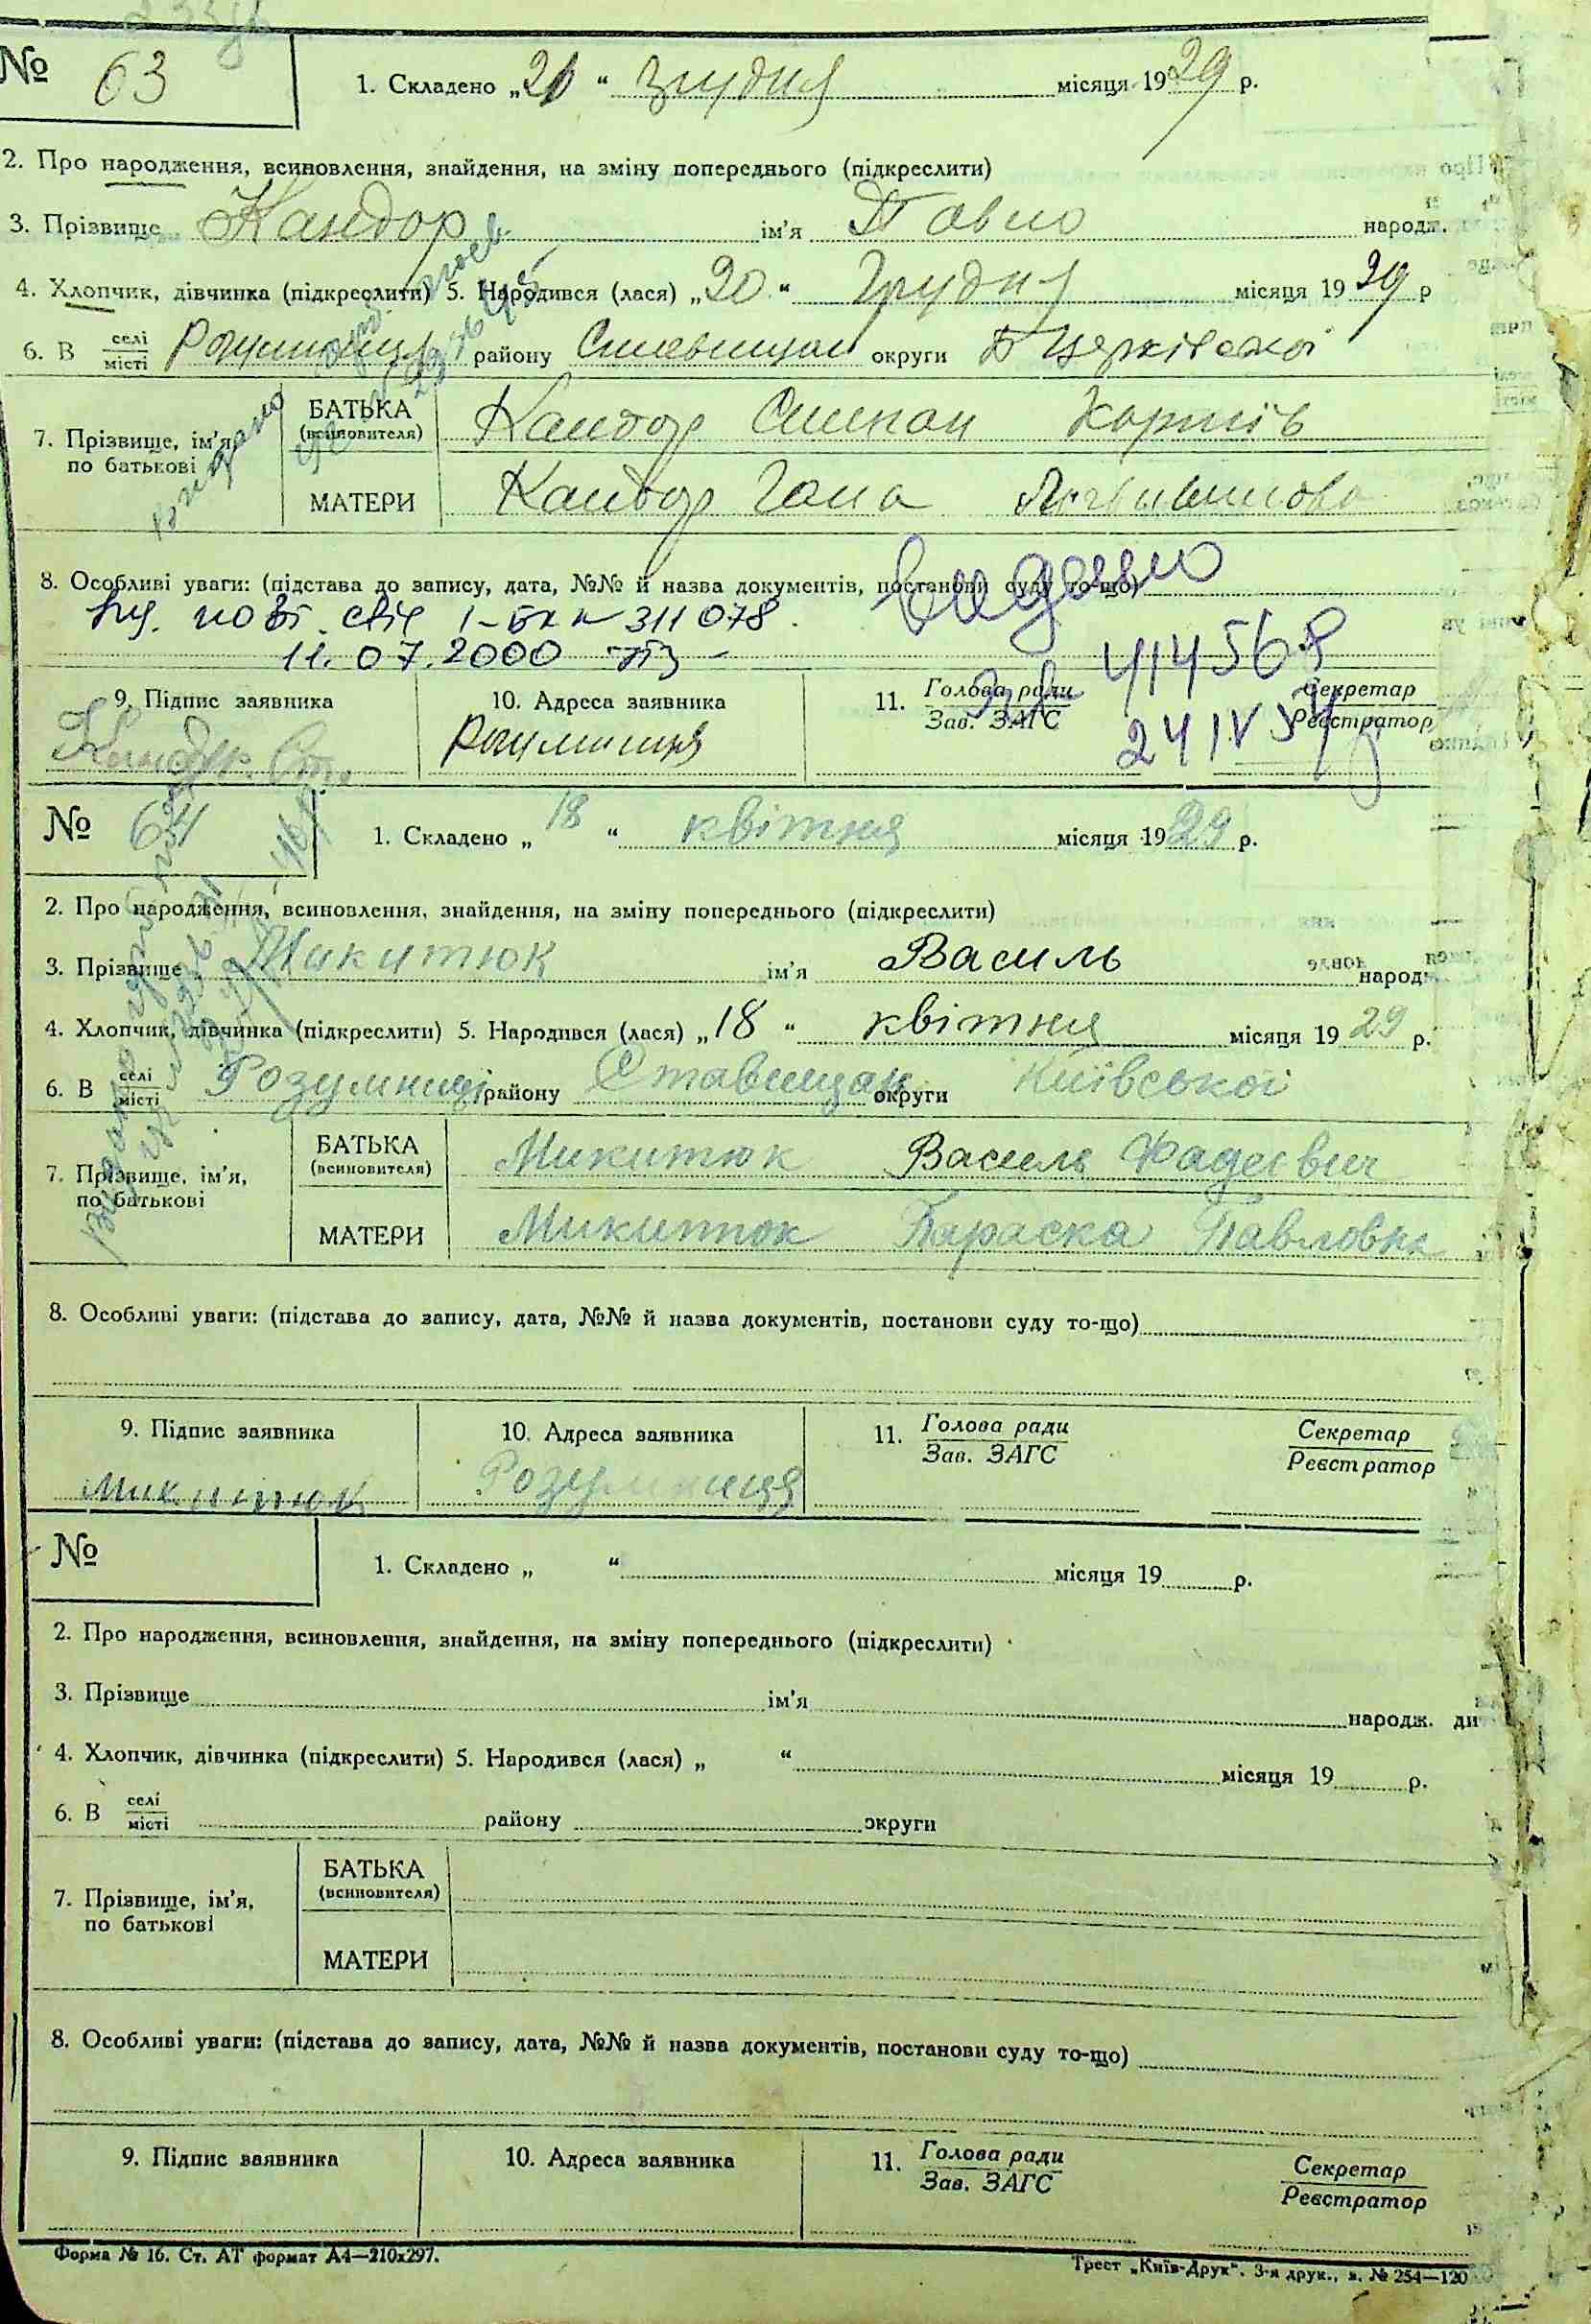 № 63
1. Складено „21“ грудня місяця 1929 р.
2. Про народження, всиновлення, знайдення, на зміну попереднього (підкреслити)
3. Прізвище Кандор ім'я Павло народж.
4. Хлопчик, дівчинка (підкреслити) 5. Народився (лася) „20“ Грудня місяця 1929 р
6. В селі/місті району округи Б Церківської
7. Прізвище, ім'я, по батькові
БАТЬКА (всиновителя) Кандор Степан
МАТЕРИ Кандор Гана
8. Особливі уваги: (підстава до запису, дата, №№ й назва документів, постанови суду то-що) видано
повт. свід I-БК № 311078
11.07.2000
414568
24 IV
9. Підпис заявника
10. Адреса заявника
11. Голова ради / Зав. ЗАГС
Секретар / Реєстратор
Кандор Ст.
№ 64
1. Складено „18“ квітня місяця 1929 р.
2. Про народження, всиновлення, знайдення, на зміну попереднього (підкреслити)
3. Прізвище Микитюк ім'я Василь народж
4. Хлопчик, дівчинка (підкреслити) 5. Народився (лася) „18“ квітня місяця 1929 р.
6. В селі/місті Розумниці району Ставищан округи Київської
7. Прізвище, ім'я, по батькові
БАТЬКА (всиновителя) Микитюк Василь Фадеєвич
МАТЕРИ Микитюк Параска Павловна
8. Особливі уваги: (підстава до запису, дата, №№ й назва документів, постанови суду то-що)
9. Підпис заявника
10. Адреса заявника
11. Голова ради / Зав. ЗАГС
Секретар / Реєстратор
Микитюк Розумниця
№
1. Складено „ “ місяця 19 р.
2. Про народження, всиновлення, знайдення, на зміну попереднього (підкреслити)
3. Прізвище ім'я народж. ди
4. Хлопчик, дівчинка (підкреслити) 5. Народився (лася) „ “ місяця 19 р.
6. В селі/місті району округи
7. Прізвище, ім'я, по батькові
БАТЬКА (всиновителя)
МАТЕРИ
8. Особливі уваги: (підстава до запису, дата, №№ й назва документів, постанови суду то-що)
9. Підпис заявника
10. Адреса заявника
11. Голова ради / Зав. ЗАГС
Секретар / Реєстратор
Форма № 16. Ст. АТ формат А4—210х297.
Трест „Київ-Друк“. 3-я друк., з. № 254—120